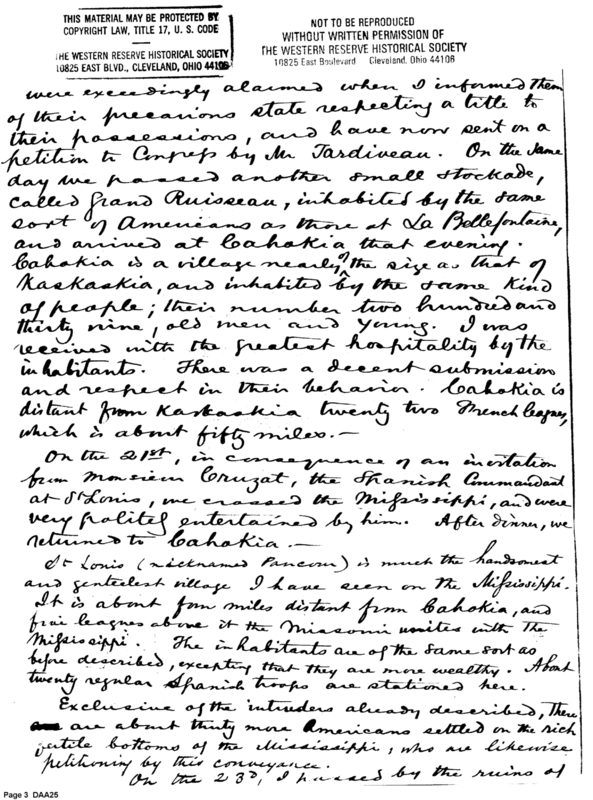 THIS MATERIAL MAY BE PROTECTED BY
COPYRIGHT LAW, TITLE 17, U. S. CODE
THE WESTERN RESERVE HISTORICAL SOCIETY
10825 EAST BLVD., CLEVELAND, OHIO 44106
NOT TO BE REPRODUCED
WITHOUT WRITTEN PERMISSION OF
THE WESTERN RESERVE HISTORICAL SOCIETY
10825 East Boulevard Cleveland, Ohio 44106
were exceedingly alarmed when I informed them
of their precarious state respecting a title to
their possessions, and have now sent on a
petition to Congress by Mr Tardiveau. On the same
day we passed another small stockade,
called Grand Ruisseau, inhabited by the same
sort of Americans as those at La Bellefontaine,
and arrived at Cahokia that evening.
Cahokia is a village nearly of the size as that of
Kaskaskia, and inhabited by the same kind
of people; their number two hundred and
thirty nine, old men and young. I was
received with the greatest hospitality by the
inhabitants. There was a decent submission
and respect in their behavior. Cahokia is
distant from Kaskaskia twenty two French leagues,
which is about fifty miles.—
On the 21st, in consequence of an invitation
from Monsieur Cruzat, the Spanish Commandant
at St Louis, we crossed the Mississippi, and were
very politely entertained by him. After dinner, we
returned to Cahokia.—
St Louis (nicknamed Pancour) is much the handsomest
and genteelest village I have seen on the Mississippi.
It is about four miles distant from Cahokia, and
five leagues above it the Missouri unites with the
Mississippi. The inhabitants are of the same sort as
before described, excepting that they are more wealthy. About
twenty regular Spanish troops are stationed here.
Exclusive of the intruders already described, there
are about thirty more Americans settled on the rich
fertile bottoms of the Mississippi, who are likewise
petitioning by this conveyance.
On the 23d, I passed by the ruins of
Page 3 DAA25